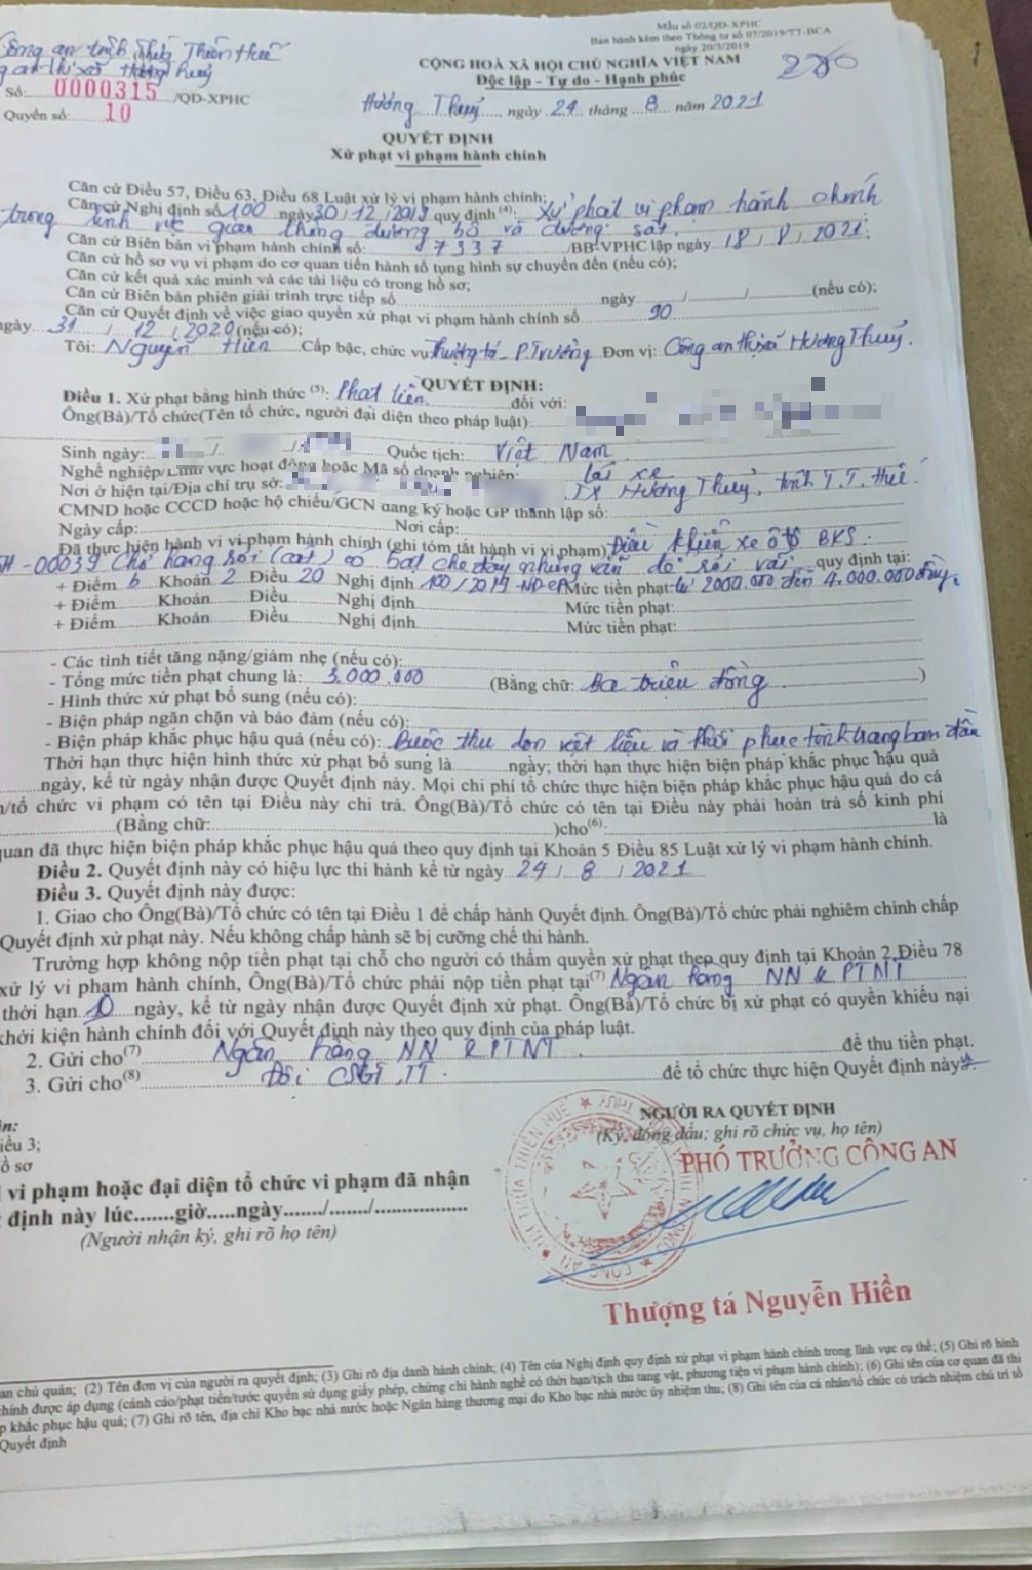 Mẫu số 02/QD-XPHC
Ban hành kèm theo Thông tư số 07/2019/TT-BCA
ngày 20/3/2019
Công an tỉnh Thừa Thiên Huế
CỘNG HOÀ XÃ HỘI CHỦ NGHĨA VIỆT NAM
280
g an thị xã Hương Thuỷ
Độc lập - Tự do - Hạnh phúc
Số: 0000315 /QD-XPHC
Hương Thuỷ, ngày 24 tháng 8 năm 2021
Quyển số: 10
QUYẾT ĐỊNH
Xử phạt vi phạm hành chính
Căn cứ Điều 57, Điều 63, Điều 68 Luật xử lý vi phạm hành chính;
Căn cứ Nghị định số 100 ngày 30/12/2019 quy định (4): Xử phạt vi phạm hành chính
trong lĩnh vực giao thông đường bộ và đường sắt.
Căn cứ Biên bản vi phạm hành chính số: 7337 /BB-VPHC lập ngày 18/8/2021;
Căn cứ hồ sơ vụ vi phạm do cơ quan tiến hành tố tụng hình sự chuyển đến (nếu có);
Căn cứ kết quả xác minh và các tài liệu có trong hồ sơ;
Căn cứ Biên bản phiên giải trình trực tiếp số ngày / / (nếu có);
Căn cứ Quyết định về việc giao quyền xử phạt vi phạm hành chính số 90
ngày 31/12/2020 (nếu có);
Tôi: Nguyễn Hiền Cấp bậc, chức vụ Thượng tá - P.Trưởng Đơn vị: Công an thị xã Hương Thuỷ.
QUYẾT ĐỊNH:
Điều 1. Xử phạt bằng hình thức (5): Phạt tiền đối với:
Ông(Bà)/Tổ chức(Tên tổ chức, người đại diện theo pháp luật)
Sinh ngày: / / Quốc tịch: Việt Nam
Nghề nghiệp/Lĩnh vực hoạt động hoặc Mã số doanh nghiệp: lái xe
Nơi ở hiện tại/Địa chỉ trụ sở: TX Hương Thuỷ, tỉnh T.T. Huế.
CMND hoặc CCCD hoặc hộ chiếu/GCN đăng ký hoặc GP thành lập số:
Ngày cấp: Nơi cấp:
Đã thực hiện hành vi vi phạm hành chính (ghi tóm tắt hành vi vi phạm) Điều khiển xe ô tô BKS:
-00039 Chở hàng rời (cát) có bạt che đậy nhưng vẫn để rơi vãi quy định tại:
+ Điểm b Khoản 2 Điều 20 Nghị định 100/2019-NĐ-CP Mức tiền phạt: từ 2000.000 đến 4.000.000 đồng.
+ Điểm Khoản Điều Nghị định Mức tiền phạt:
+ Điểm Khoản Điều Nghị định Mức tiền phạt:
- Các tình tiết tăng nặng/giảm nhẹ (nếu có):
- Tổng mức tiền phạt chung là: 3.000.000 (Bằng chữ: Ba triệu đồng )
- Hình thức xử phạt bổ sung (nếu có):
- Biện pháp ngăn chặn và bảo đảm (nếu có):
- Biện pháp khắc phục hậu quả (nếu có): Buộc thu dọn vật liệu và khôi phục tình trạng ban đầu
Thời hạn thực hiện hình thức xử phạt bổ sung là ngày; thời hạn thực hiện biện pháp khắc phục hậu quả
ngày, kể từ ngày nhận được Quyết định này. Mọi chi phí tổ chức thực hiện biện pháp khắc phục hậu quả do cá
n/tổ chức vi phạm có tên tại Điều này chi trả. Ông(Bà)/Tổ chức có tên tại Điều này phải hoàn trả số kinh phí
(Bằng chữ: )cho(6): là
quan đã thực hiện biện pháp khắc phục hậu quả theo quy định tại Khoản 5 Điều 85 Luật xử lý vi phạm hành chính.
Điều 2. Quyết định này có hiệu lực thi hành kể từ ngày 24/8/2021
Điều 3. Quyết định này được:
1. Giao cho Ông(Bà)/Tổ chức có tên tại Điều 1 để chấp hành Quyết định. Ông(Bà)/Tổ chức phải nghiêm chỉnh chấp
Quyết định xử phạt này. Nếu không chấp hành sẽ bị cưỡng chế thi hành.
Trường hợp không nộp tiền phạt tại chỗ cho người có thẩm quyền xử phạt theo quy định tại Khoản 2 Điều 78
xử lý vi phạm hành chính, Ông(Bà)/Tổ chức phải nộp tiền phạt tại(7) Ngân hàng NN & PTNT
thời hạn 10 ngày, kể từ ngày nhận được Quyết định xử phạt. Ông(Bà)/Tổ chức bị xử phạt có quyền khiếu nại
khởi kiện hành chính đối với Quyết định này theo quy định của pháp luật.
2. Gửi cho(7) Ngân hàng NN & PTNT. để thu tiền phạt.
3. Gửi cho(8) Đội CSGT, TT. để tổ chức thực hiện Quyết định này
NGƯỜI RA QUYẾT ĐỊNH
(Ký, đóng dấu; ghi rõ chức vụ, họ tên)
PHÓ TRƯỞNG CÔNG AN
ận:
iều 3;
ồ sơ
i vi phạm hoặc đại diện tổ chức vi phạm đã nhận
t định này lúc.......giờ.....ngày......./......./.................
(Người nhận ký, ghi rõ họ tên)
Thượng tá Nguyễn Hiền
an chủ quản; (2) Tên đơn vị của người ra quyết định; (3) Ghi rõ địa danh hành chính; (4) Tên của Nghị định quy định xử phạt vi phạm hành chính trong lĩnh vực cụ thể; (5) Ghi rõ hình
chính được áp dụng (cảnh cáo/phạt tiền/tước quyền sử dụng giấy phép, chứng chỉ hành nghề có thời hạn/tịch thu tang vật, phương tiện vi phạm hành chính); (6) Ghi tên của cơ quan đã thi
p khắc phục hậu quả; (7) Ghi rõ tên, địa chỉ Kho bạc nhà nước hoặc Ngân hàng thương mại do Kho bạc nhà nước ủy nhiệm thu; (8) Ghi tên của cá nhân/tổ chức có trách nhiệm chủ trì tổ
Quyết định